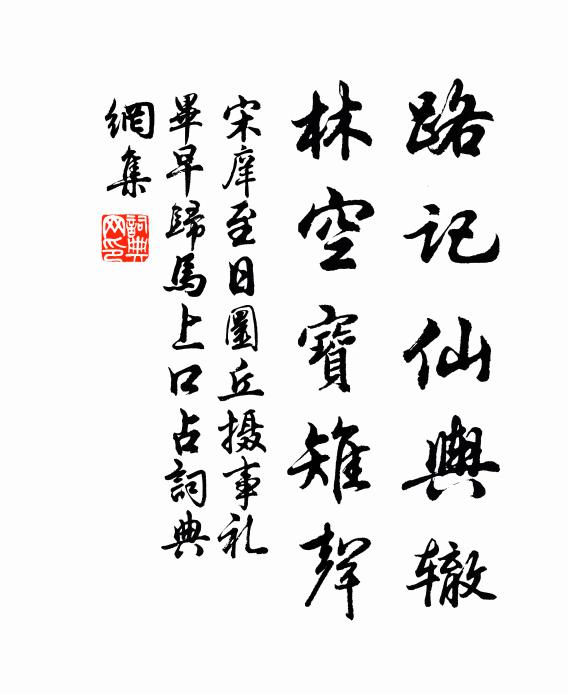 路记仙舆辙
林空寶雉聲
宋庠至日圜丘摄事礼
畢早歸馬上口占詞典
網集
詞典
网印